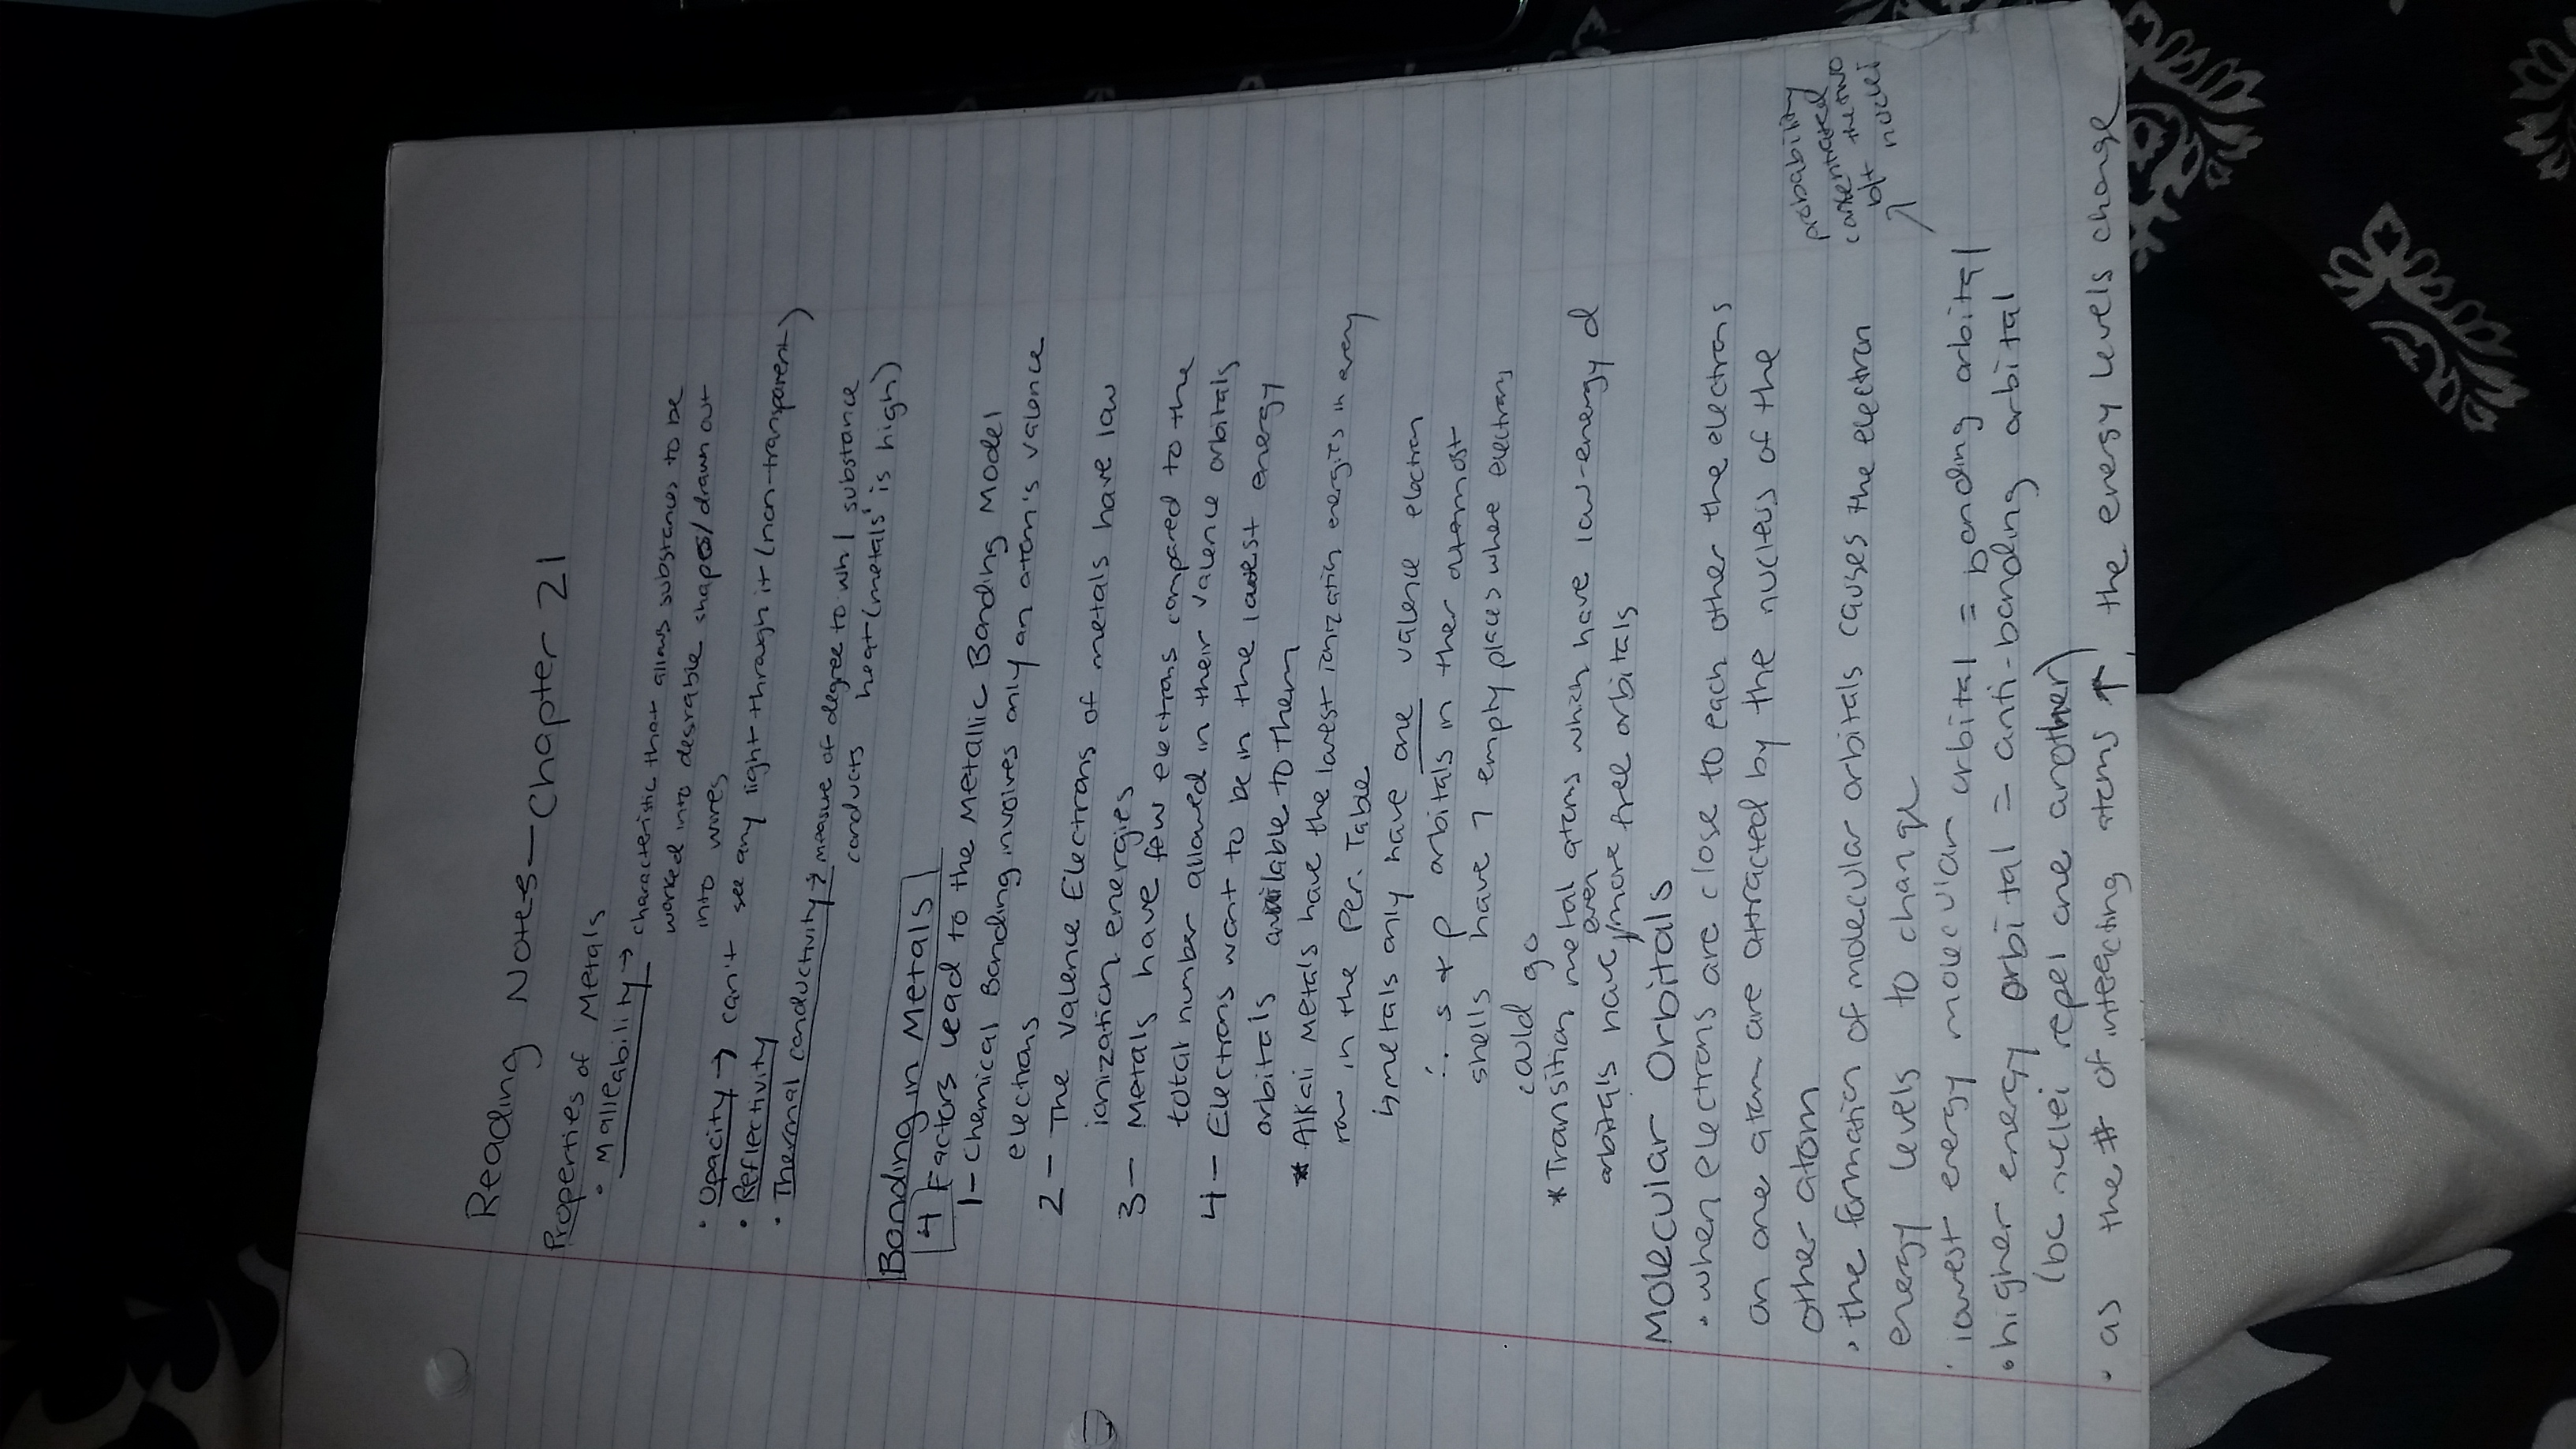 Reading Notes - Chapter 21
Properties of Metals
• Malleability → characteristic that allows substances to be
worked into desirable shapes/drawn out
into wires
• Opacity → can't see any light through it (non-transparent)
• Reflectivity
• Thermal conductivity → measure of degree to wh/ substance
conducts heat (metals' is high)
Bonding in Metals
4 Factors lead to the Metallic Bonding Model
1- Chemical Bonding involves only an atom's valence
electrons
2- The Valence Electrons of metals have low
ionization energies
3- Metals have few electrons compared to the
total number allowed in their valence orbitals
4- Electrons want to be in the lowest energy
orbitals available to them
* Alkali Metals have the lowest ionization energies in every
row in the Per. Table
↳ metals only have one valence electron
∴ s + p orbitals in ther outermost
shells have 7 empty places where electrons
could go
* Transition metal atoms which have low-energy d
orbitals have even/more free orbitals
Molecular Orbitals
• when electrons are close to each other the electrons
on one atom are attracted by the nucleus of the
other atom
• the formation of molecular orbitals causes the electron
energy levels to change
probability
concentrated
b/t the two
nuclei
• lowest energy molecular orbital = bonding orbital ↗
• higher energy orbital = anti-bonding orbital
(bc nuclei repel one another)
• as the # of interacting atoms ↑, the energy levels change